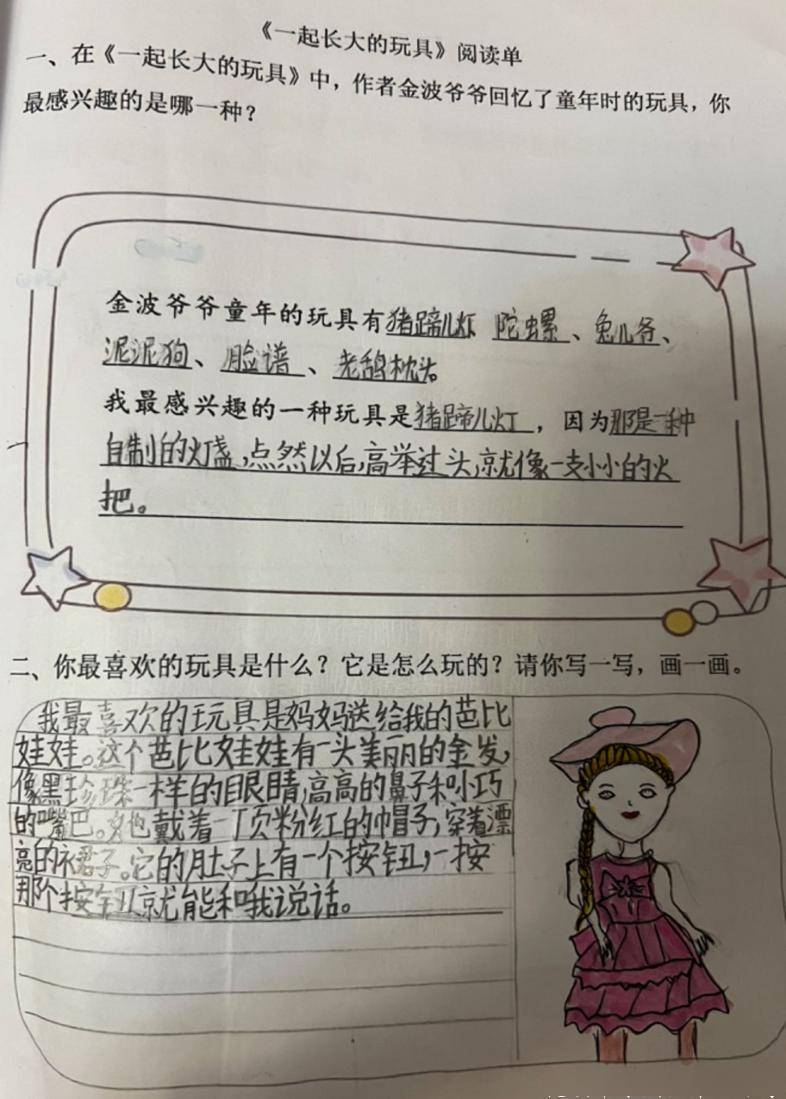 《一起长大的玩具》阅读单
一、在《一起长大的玩具》中，作者金波爷爷回忆了童年时的玩具，你
最感兴趣的是哪一种？
金波爷爷童年的玩具有猪蹄儿灯、陀螺、兔儿爷、
泥泥狗、脸谱、老鸹枕头。
我最感兴趣的一种玩具是猪蹄儿灯，因为那是一种
自制的灯盏，点然以后，高举过头，就像一支小小的火
把。
二、你最喜欢的玩具是什么？它是怎么玩的？请你写一写，画一画。
我最喜欢的玩具是妈妈送给我的芭比
娃娃。这个芭比娃娃有一头美丽的金发，
像黑珍珠一样的眼睛，高高的鼻子和小巧
的嘴巴。她戴着一丁页粉红的帽子，穿着漂
亮的衣君子。它的月土子上有一个按钮，一按
那个按钮就能和我说话。